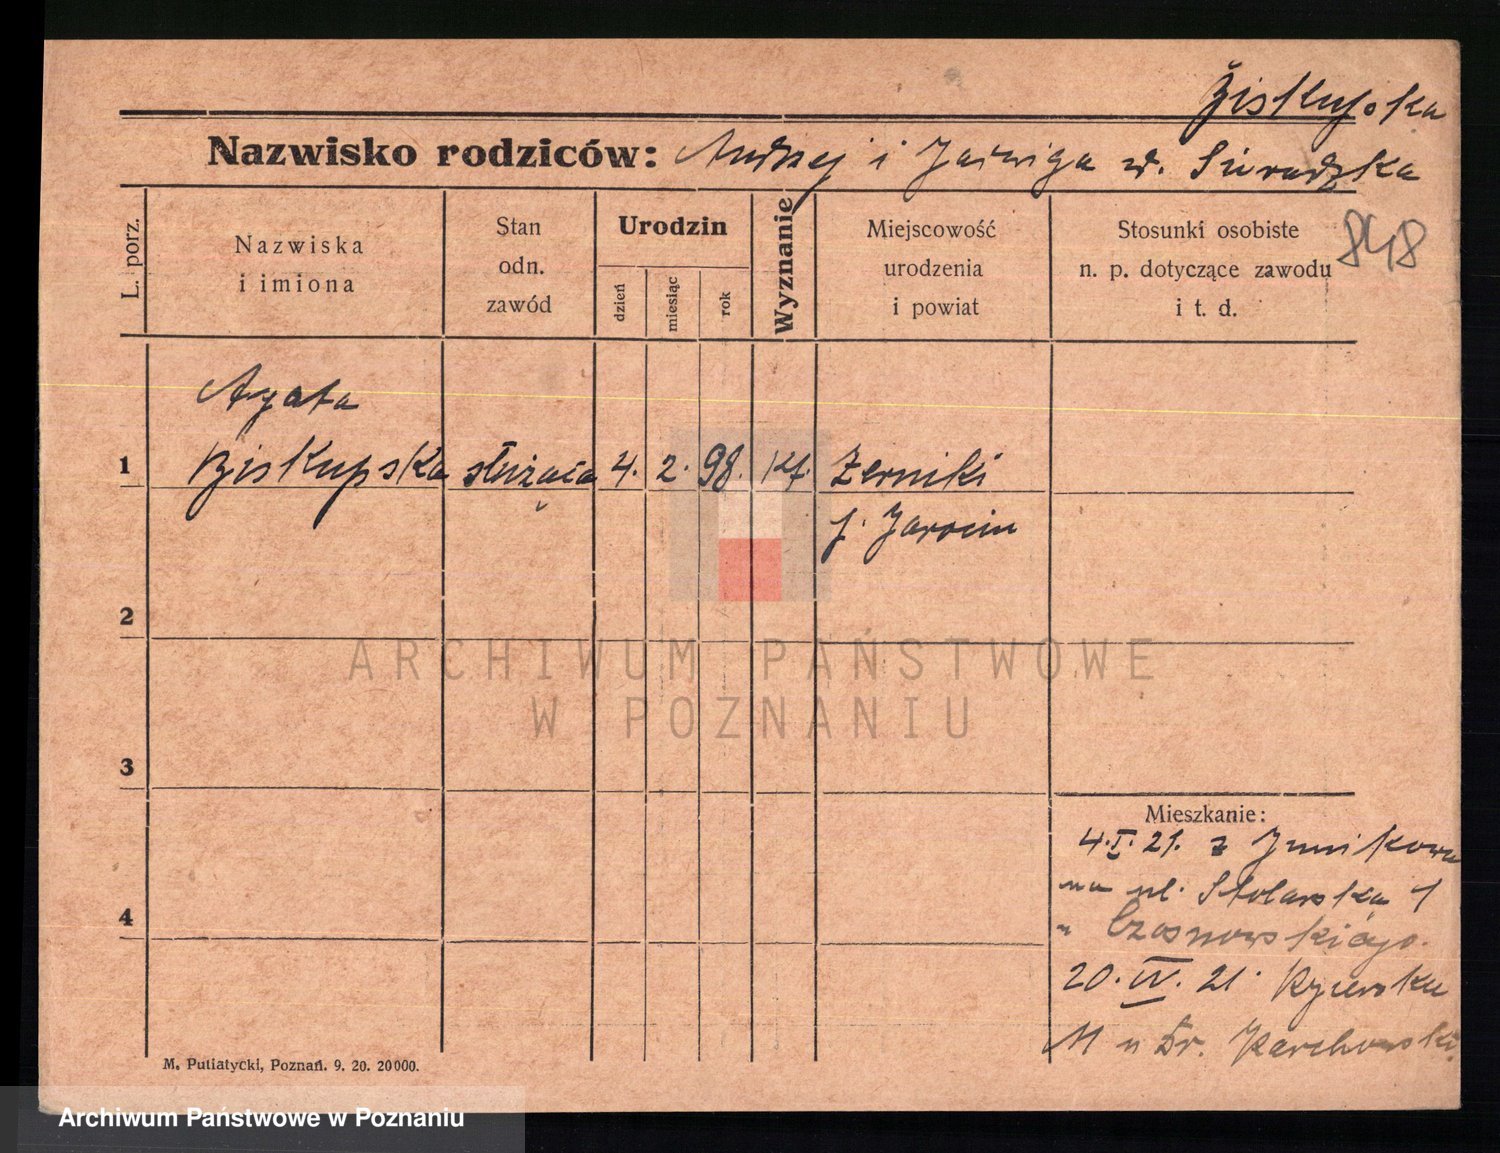 Biskupska
Nazwisko rodziców: Andrzej i Jadwiga z d. Sieradzka
848
L. porz.
Nazwiska
i imiona
Stan
odn.
zawód
Urodzin
dzień
miesiąc
rok
Wyznanie
Miejscowość
urodzenia
i powiat
Stosunki osobiste
n. p. dotyczące zawodu
i t. d.
Agata
1 Biskupska służąca 4. 2. 98. kt. Żerniki
p. Jarocin
2
3
4
Mieszkanie:
4. I. 21. z Junikowa
na ul. Stolarska 1
u Czosnowskiego.
20. IV. 21.
11 u Dr. Karchowski
M. Putiatycki, Poznań. 9. 20. 20000.
ARCHIWUM PAŃSTWOWE
W POZNANIU
Archiwum Państwowe w Poznaniu